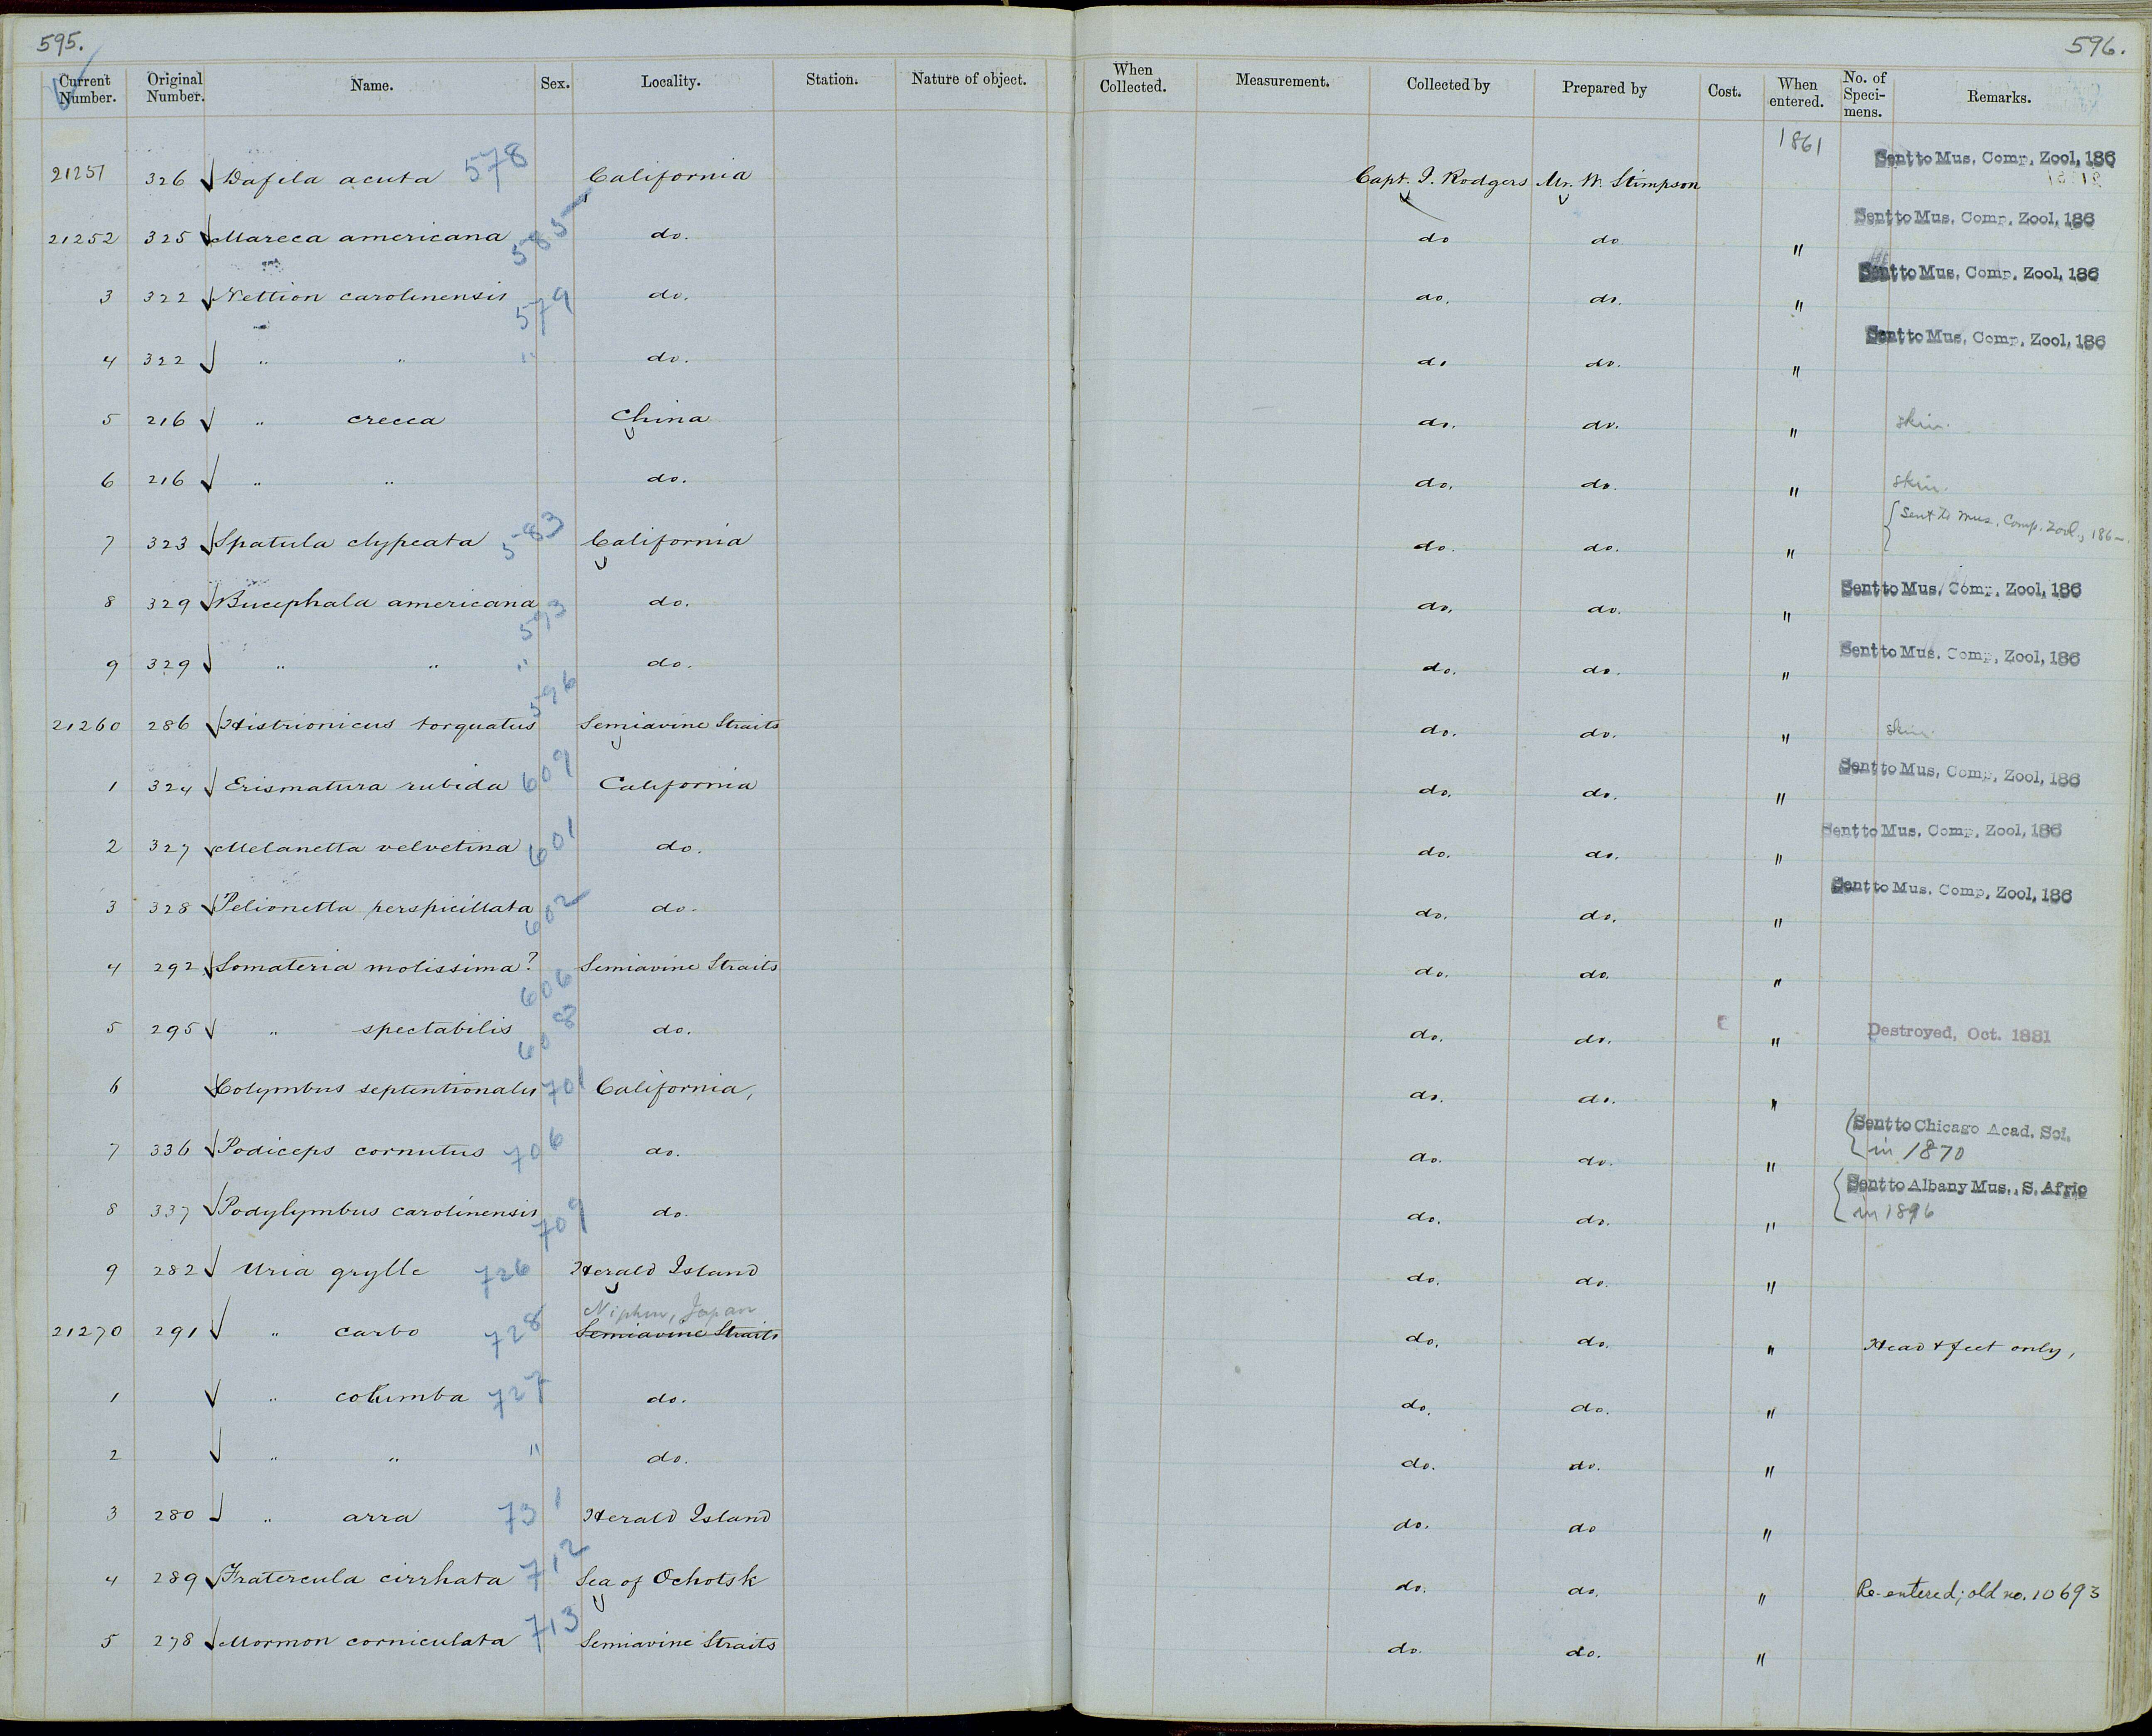 595.
596.
Current Number. Original Number. Name. Sex. Locality. Station. Nature of object. When Collected. Measurement. Collected by Prepared by Cost. When entered. No. of Specimens. Remarks.
21251 326 Dafila acuta 578 California Capt. J. Rodgers Mr. W. Stimpson 1861 Sent to Mus. Comp. Zool, 186
21252 325 Mareca americana 585 do. do do. " Sent to Mus. Comp. Zool, 186
3 322 Nettion carolinensis 579 do. do. do. " Sent to Mus. Comp. Zool, 186
4 322 " " " do. do do. " Sent to Mus. Comp. Zool, 186
5 216 " crecca China do. do. " skin.
6 216 " " do. do. do. " skin.
7 323 Spatula clypeata 583 California do. do. " Sent to Mus. Comp. Zool., 186-.
8 329 Bucephala americana 593 do. do. do. " Sent to Mus. Comp. Zool, 186
9 329 " " " do. do. do. " Sent to Mus. Comp. Zool, 186
21260 286 Histrionicus torquatus 596 Semiavine Straits do. do. " skin.
1 324 Erismatura rubida 609 California do. do. " Sent to Mus. Comp. Zool, 186
2 327 Melanetta velvetina 601 do. do. do. " Sent to Mus. Comp. Zool, 186
3 328 Pelionetta perspicillata 602 do. do. do. " Sent to Mus. Comp. Zool, 186
4 292 Somateria molissima? 606 Semiavine Straits do. do. "
5 295 " spectabilis 608 do. do. do. " Destroyed, Oct. 1881
6 Colymbus septentionalis 701 California, do. do. "
7 336 Podiceps cornutus 706 do. do. do. " Sent to Chicago Acad. Sci. in 1870
8 337 Podylymbus carolinensis 709 do. do. do. " Sent to Albany Mus., S. Afric in 1896
9 282 Uria grylle 726 Herald Island do. do. "
Niphon, Japan
21270 291 " carbo 728 Semiavine Straits do. do. " Head & feet only,
1 " columba 727 do. do. do. "
2 " " " do. do. do. "
3 280 " arra 731 Herald Island do. do "
4 289 Fratercula cirrhata 712 Sea of Ochotsk do. do. " Re-entered; old no. 10693
5 278 Mormon corniculata 713 Semiavine Straits do. do. "